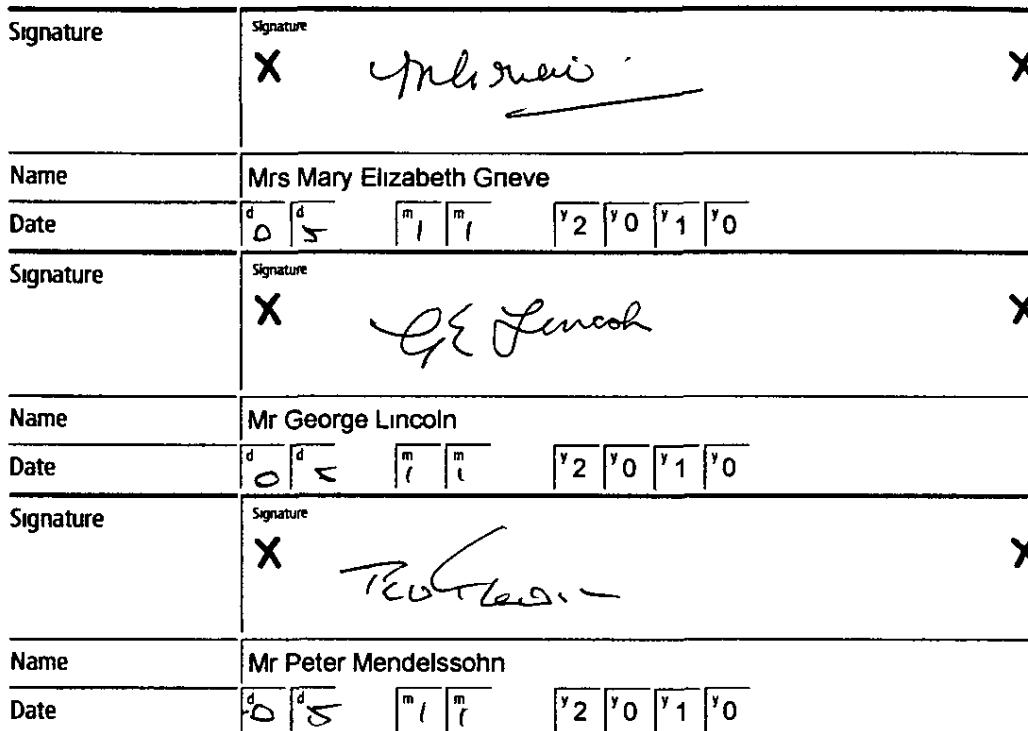 Signature Signature
X X
Name Mrs Mary Elizabeth Grieve
Date d 0 d 5 m 1 m 1 y 2 y 0 y 1 y 0
Signature Signature
X GE Lincoln X
Name Mr George Lincoln
Date d 0 d 5 m 1 m 1 y 2 y 0 y 1 y 0
Signature Signature
X X
Name Mr Peter Mendelssohn
Date d 0 d 5 m 1 m 1 y 2 y 0 y 1 y 0